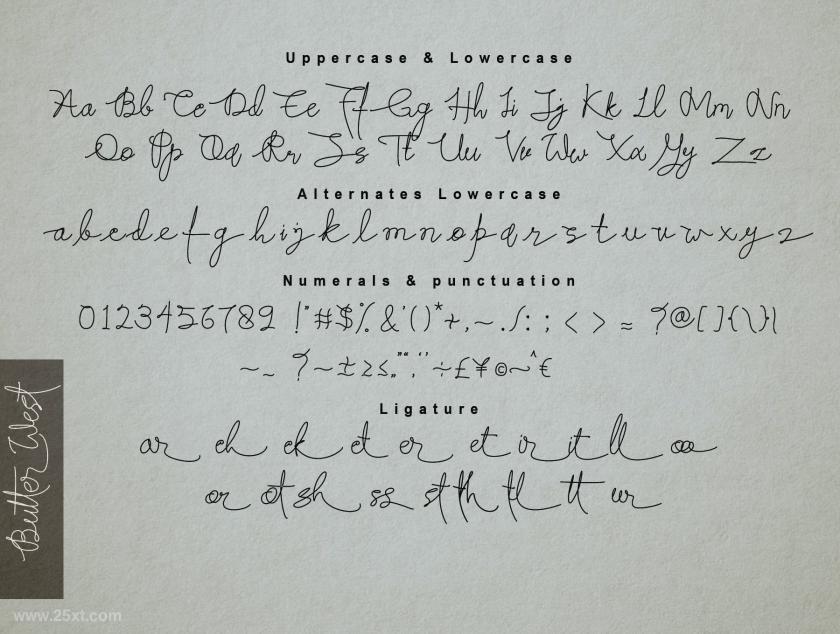 Uppercase & Lowercase
Aa Bb Cc Dd Ee Ff Gg Hh Ii Jj Kk Ll Mm Nn
Oo Pp Qq Rr Ss Tt Uu Vv Ww Xx Yy Zz
Alternates Lowercase
a b c d e f g h i j k l m n o p q r s t u v w x y z
Numerals & punctuation
0123456789 !"#$%&'()*+,-./:;<>≈?@[]{\}|
~_ ?~±≥≤„"“,‘’÷£¥©~^€
Ligature
ar ch ck ct er et ir it ll oo
or ot sh ss st th tl tt ur
Butter West
www.25xt.com